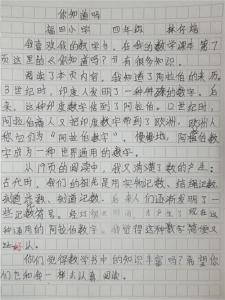 你知道吗
福田小学 四年级 林
我喜欢我的数学书，在我的数学课本第7
页这里的《你知道吗？》有很多知识。
阅读了本页内容，我知道了阿拉伯的来历
3世纪时，印度人发明了一种 的数字。后
来，这种印度数字传到了阿拉伯。12世纪时，
阿拉伯 人又把印度数字带到了欧洲，欧洲人
称它们为“阿拉伯数字”。慢慢地，阿拉伯数
字成为一种世界通用的数字。
从19页的阅读中，我又读懂了数的产生：
古代时，我们的祖先是用实物记数、结绳记数、
刻道记数。后来人们逐渐发明了一
些记数符号。 现在这
种通用的阿拉伯数字。 觉得这种数字简便又
好认。
你们觉得数学书中的知识丰富吗？希望你
们也和我一样去认真阅读。